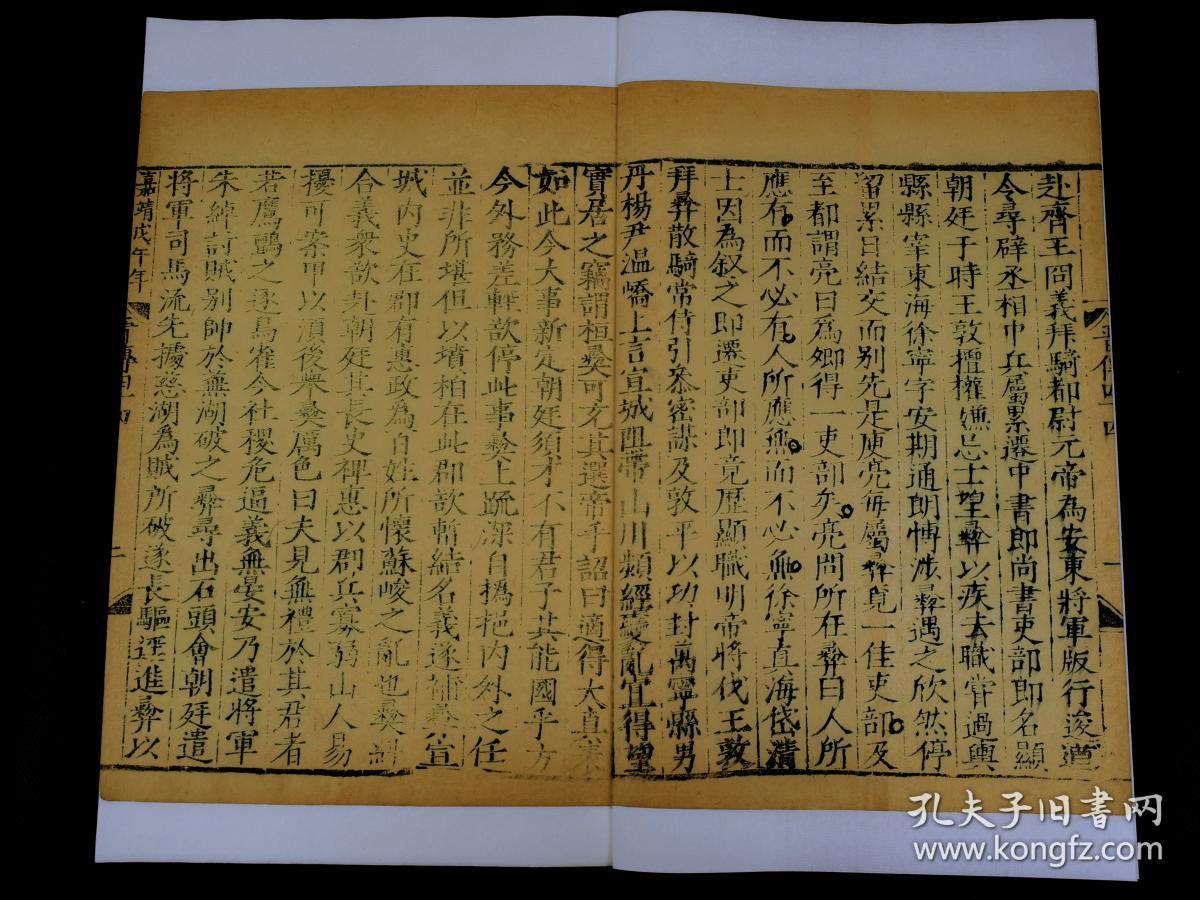 赴齊王冏義拜騎都尉元帝為安東將軍版行逡遒
令尋辟丞相中兵屬累遷中書郎尚書吏部郎名顯
朝廷于時王敦擅權嫌忌士望彝以疾去職嘗過輿
縣縣宰東海徐寧字安期通朗博涉彝遇之欣然停
留累日結交而別先是庾亮每屬彝覓一佳吏部及
至都謂亮曰為卿得一吏部矣亮問所在彝曰人所
應有而不必有人所應無而不必無徐寧真海岱清
士因為叙之即遷吏部郎竟歷顯職明帝將伐王敦
拜彝散騎常侍引叅密謀及敦平以功封萬寧縣男
丹楊尹温嶠上言宣城阻帶山川頻經變亂宜得望
實居之竊謂桓彝可充其選帝手詔曰適得太真表
如此今大事新定朝廷須才不有君子其能國乎方
今外務差輕欲停此事彝上疏深自撝挹內外之任
並非所堪但以墳柏在此郡欲暫結名義遂補彝宣
城內史在郡有惠政為百姓所懷蘇峻之亂也彝糾
合義衆欲赴朝廷其長史裨惠以郡兵寡弱山人易
擾可案甲以須後舉彝厲色曰夫見無禮於其君者
若鷹鸇之逐鳥雀今社稷危逼義無晏安乃遣將軍
朱綽討賊別帥於蕪湖破之彝尋出石頭會朝廷遣
將軍司馬流先據慈湖為賊所破遂長驅逕進彝以
嘉靖戊午年
晉傳四十四
二
晉傳四十四
一
孔夫子旧书网
www.kongfz.com